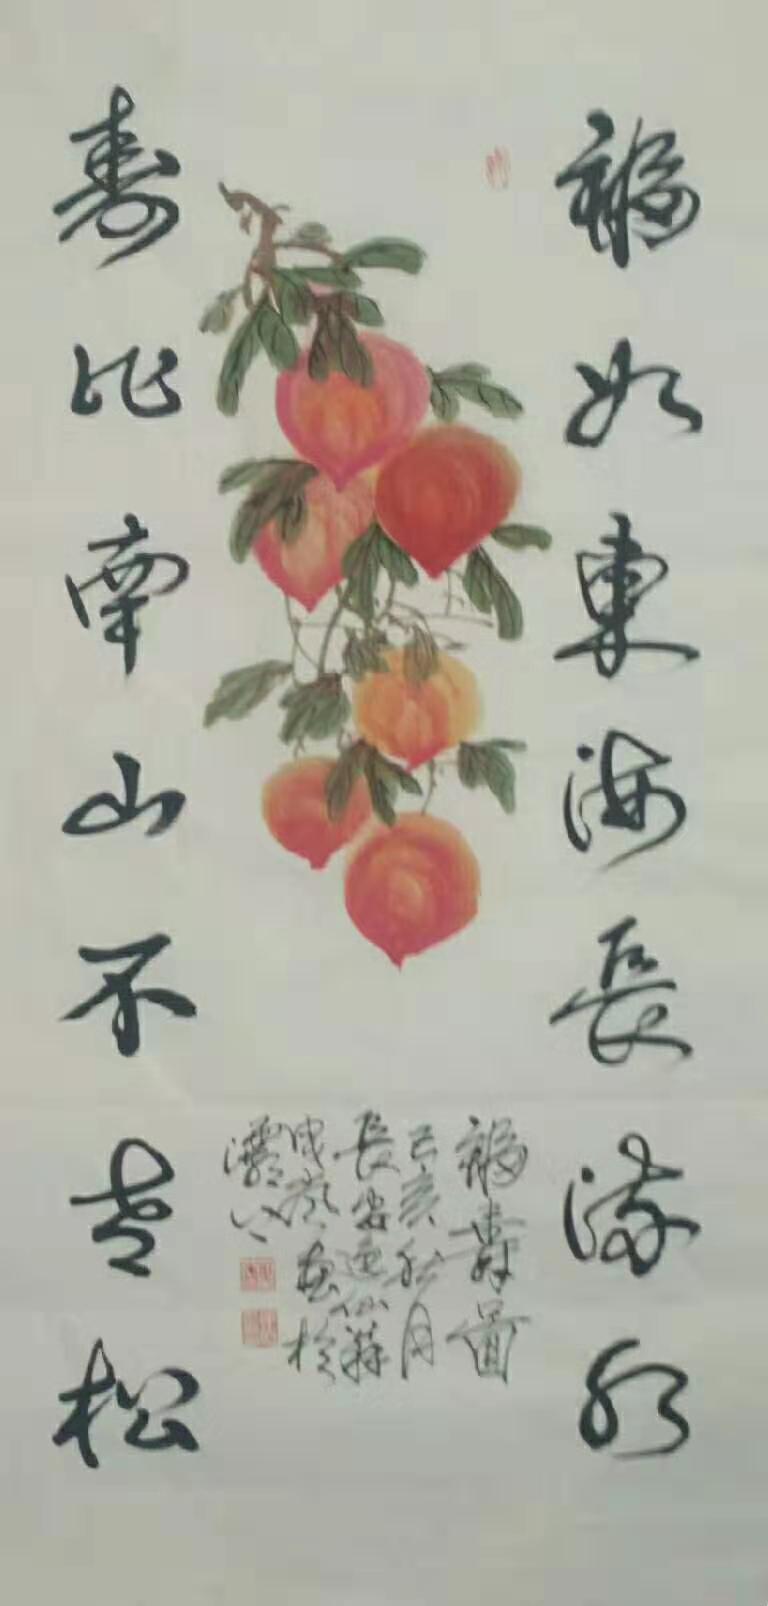 福如東海長流水
壽比南山不老松
福壽圖
己亥秋月
長安
畫於
灞上